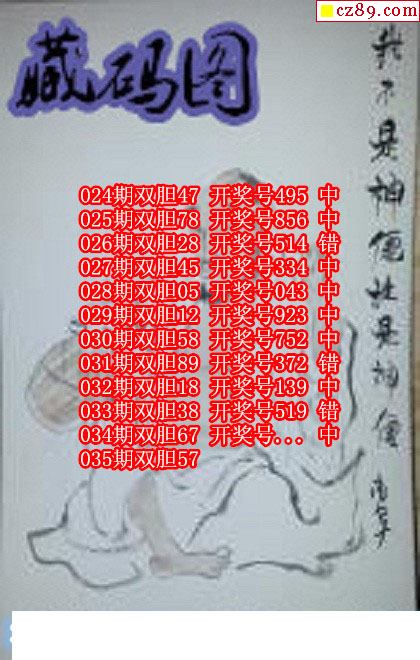 cz89.com
藏码图
我不是神僊就是神僊
024期双胆47 开奖号495 中
025期双胆78 开奖号856 中
026期双胆28 开奖号514 错
027期双胆45 开奖号334 中
028期双胆05 开奖号043 中
029期双胆12 开奖号923 中
030期双胆58 开奖号752 中
031期双胆89 开奖号372 错
032期双胆18 开奖号139 中
033期双胆38 开奖号519 错
034期双胆67 开奖号... 中
035期双胆57